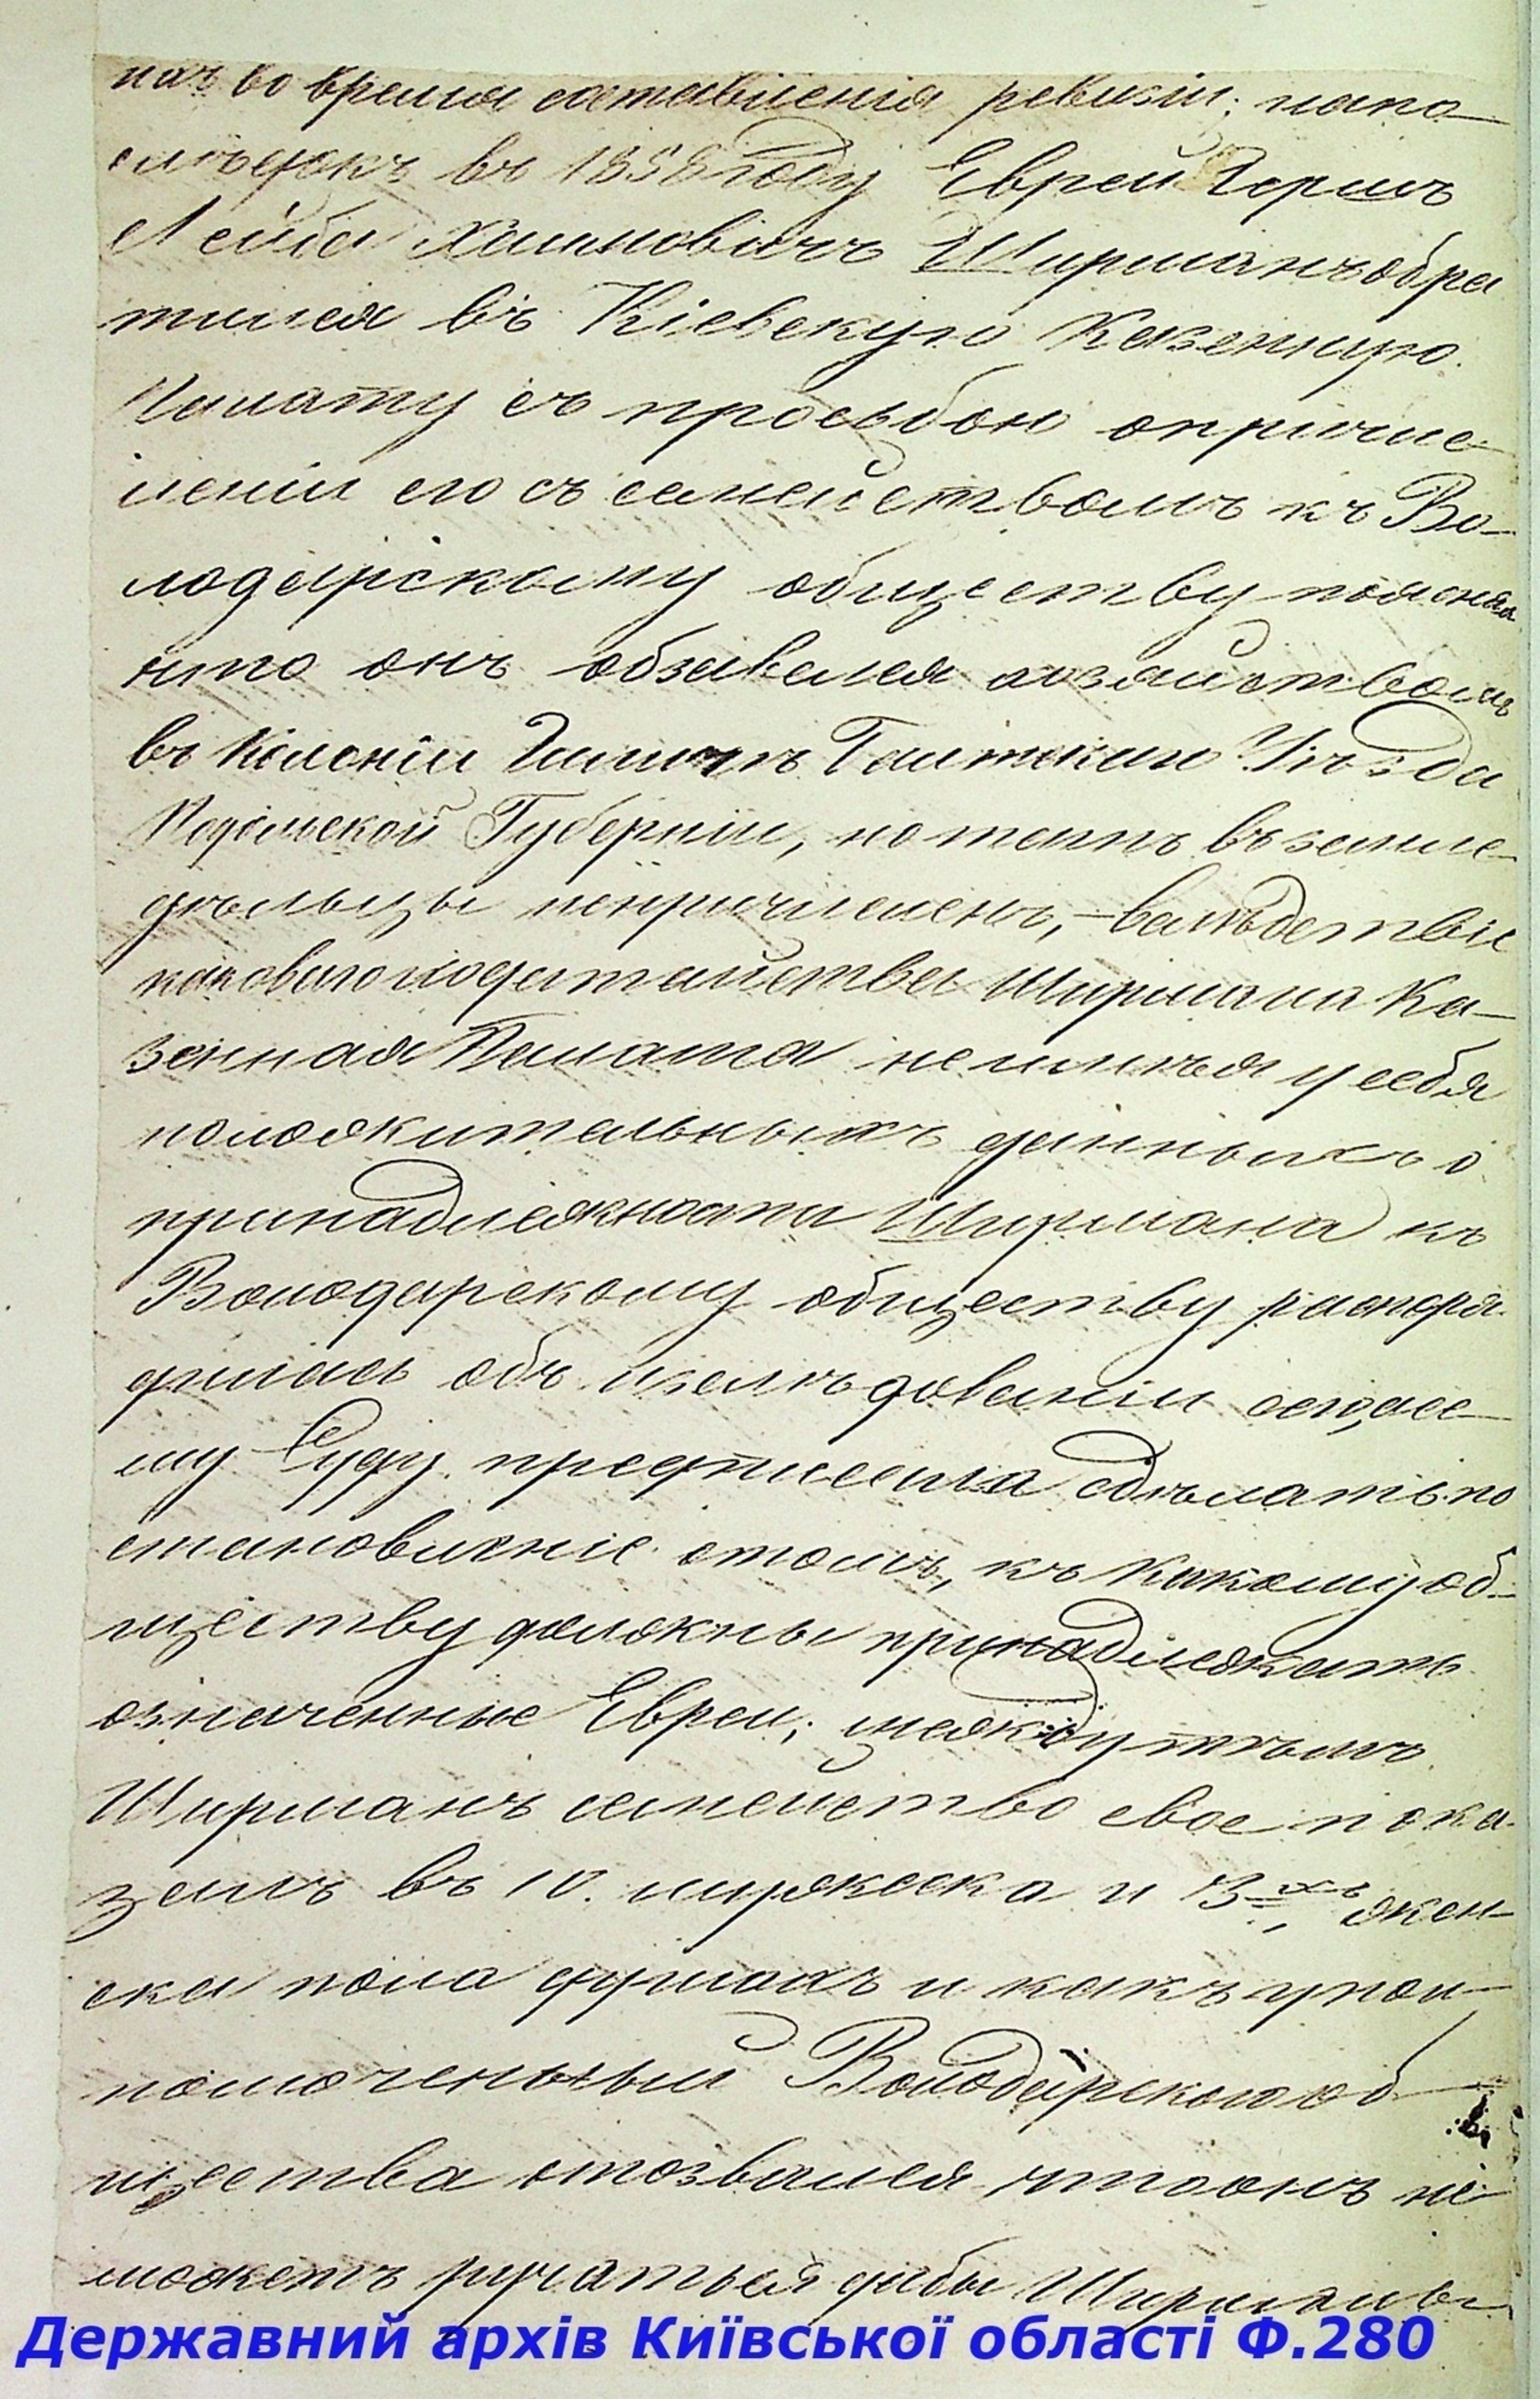 во время составленія ревизіи; напо
слѣдокъ въ 1858 году Еврей Гершъ
Лейба Хаимовичъ Ширманъ обра
тился въ Кіевскую Казенную
Палату съ просьбою о причис
леніи его съ семействомъ къ Во-
лодарскому обществу поясняя
что онъ обзавелся хозяйствомъ
въ Колоніи Уѣзда
Подольской Губерніи, но тамъ въ земле-
дѣльцы непричисленъ, – вслѣдствіе
каковаго ходатайства Ширмана Ка-
зенная Палата неимѣя у себя
положительныхъ данныхъ о
принадлежности Ширмана къ
Володарскому обществу распоря
дилась объ изслѣдованіи сего, а се-
му Суду предписала сдѣлать по
становленіе о томъ, къ какому об-
ществу должны принадлежать
означенные Евреи; между тѣмъ
Ширманъ семейство свое пока
залъ въ 10. мужеска и 3-хъ жен-
ска пола душахъ и какъ упол-
номоченный Володарского об-
щества отозвался что онъ не
можетъ ручаться дабы Ширманы
Державний архів Київської області Ф.280